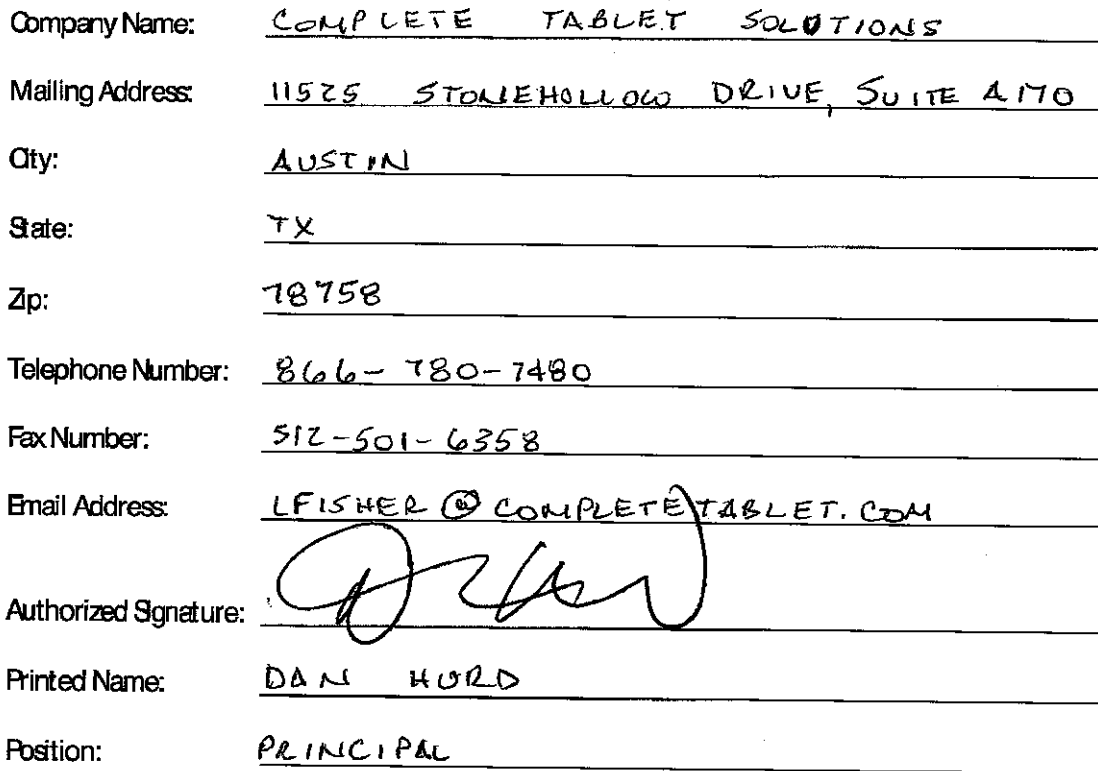 Company Name: COMPLETE TABLET SOLUTIONS
Mailing Address: 11525 STONEHOLLOW DRIVE, SUITE A170
City: AUSTIN
State: TX
Zip: 78758
Telephone Number: 866-780-7480
Fax Number: 512-501-6358
Email Address: LFISHER@COMPLETETABLET.COM
Authorized Signature:
Printed Name: DAN HURD
Position: PRINCIPAL